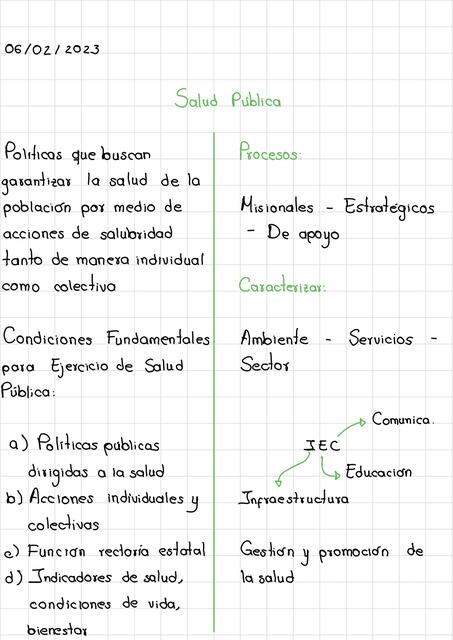 06/02/2023
Salud Pública
Políticas que buscan
garantizar la salud de la
población por medio de
acciones de salubridad
tanto de manera individual
como colectiva
Condiciones Fundamentales
para Ejercicio de Salud
Pública:
a) Políticas públicas
dirigidas a la salud
b) Acciones individuales y
colectivas
c) Función rectoría estatal
d) Indicadores de salud,
condiciones de vida,
bienestar
Procesos:
Misionales - Estratégicos
- De apoyo
Caracterizar:
Ambiente - Servicios -
Sector
Comunica.
IEC
Educación
Infraestructura
Gestión y promoción de
la salud